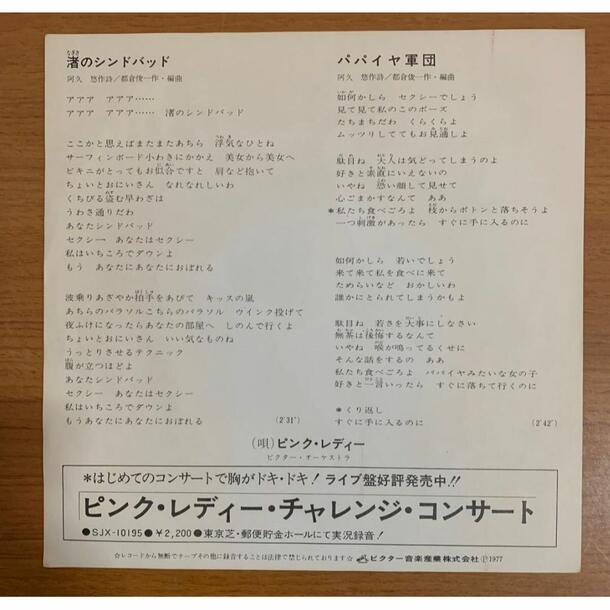 渚のシンドバッド
阿久 悠作詩/都倉俊一作・編曲
アアア アアア……
アアア アアア…… 渚のシンドバッド
ここかと思えばまたまたあちら 浮気なひとね
サーフィンボード小わきにかかえ 美女から美女へ
ビキニがとってもお似合ですと 肩など抱いて
ちょいとおにいさん なれなれしいわ
くちびる盗む早わざは
うわさ通りだわ
あなたシンドバッド
セクシー あなたはセクシー
私はいちころでダウンよ
もう あなたにあなたにおぼれる
波乗りあざやか拍手をあびて キッスの嵐
あちらのパラソルこちらのパラソル ウインク投げて
夜ふけになったらあなたの部屋へ しのんで行くよ
ちょいとおにいさん いい気なものね
うっとりさせるテクニック
腹が立つほどよ
あなたシンドバッド
セクシー あなたはセクシー
私はいちころでダウンよ
もうあなたにあなたにおぼれる
(2'31")
パパイヤ軍団
阿久 悠作詩/都倉俊一作・編曲
如何かしら セクシーでしょう
見て見て私のこのポーズ
たちまちだわ くらくらよ
ムッツリしててもお見通しよ
駄目ね 大人は気どってしまうのよ
好きと素直にいえないの
いやね 恐い顔して見せて
心ごまかすなんて ああ
*私たち食べごろよ 枝からポトンと落ちそうよ
一つ刺激があったら すぐに手に入るのに
如何かしら 若いでしょう
来て来て私を食べに来て
ためらいなど おかしいわ
誰かにとられてしまうかもよ
駄目ね 若さを大事にしなさい
無茶は後悔するなんて
いやね 喉が鳴ってるくせに
そんな話をするの ああ
私たち食べごろよ パパイヤみたいな女の子
好きと一言いったら すぐに落ちて行くのに
*くり返し
すぐに手に入るのに
(2'42")
(唄)ピンク・レディー
ビクター・オーケストラ
*はじめてのコンサートで胸がドキ・ドキ! ライブ盤好評発売中!!
ピンク・レディー・チャレンジ・コンサート
●SJX-10195●¥2,200●東京芝・郵便貯金ホールにて実況録音!
☆レコードから無断でテープその他に録音することは法律で禁じられております☆
ビクター音楽産業株式会社 Ⓟ1977